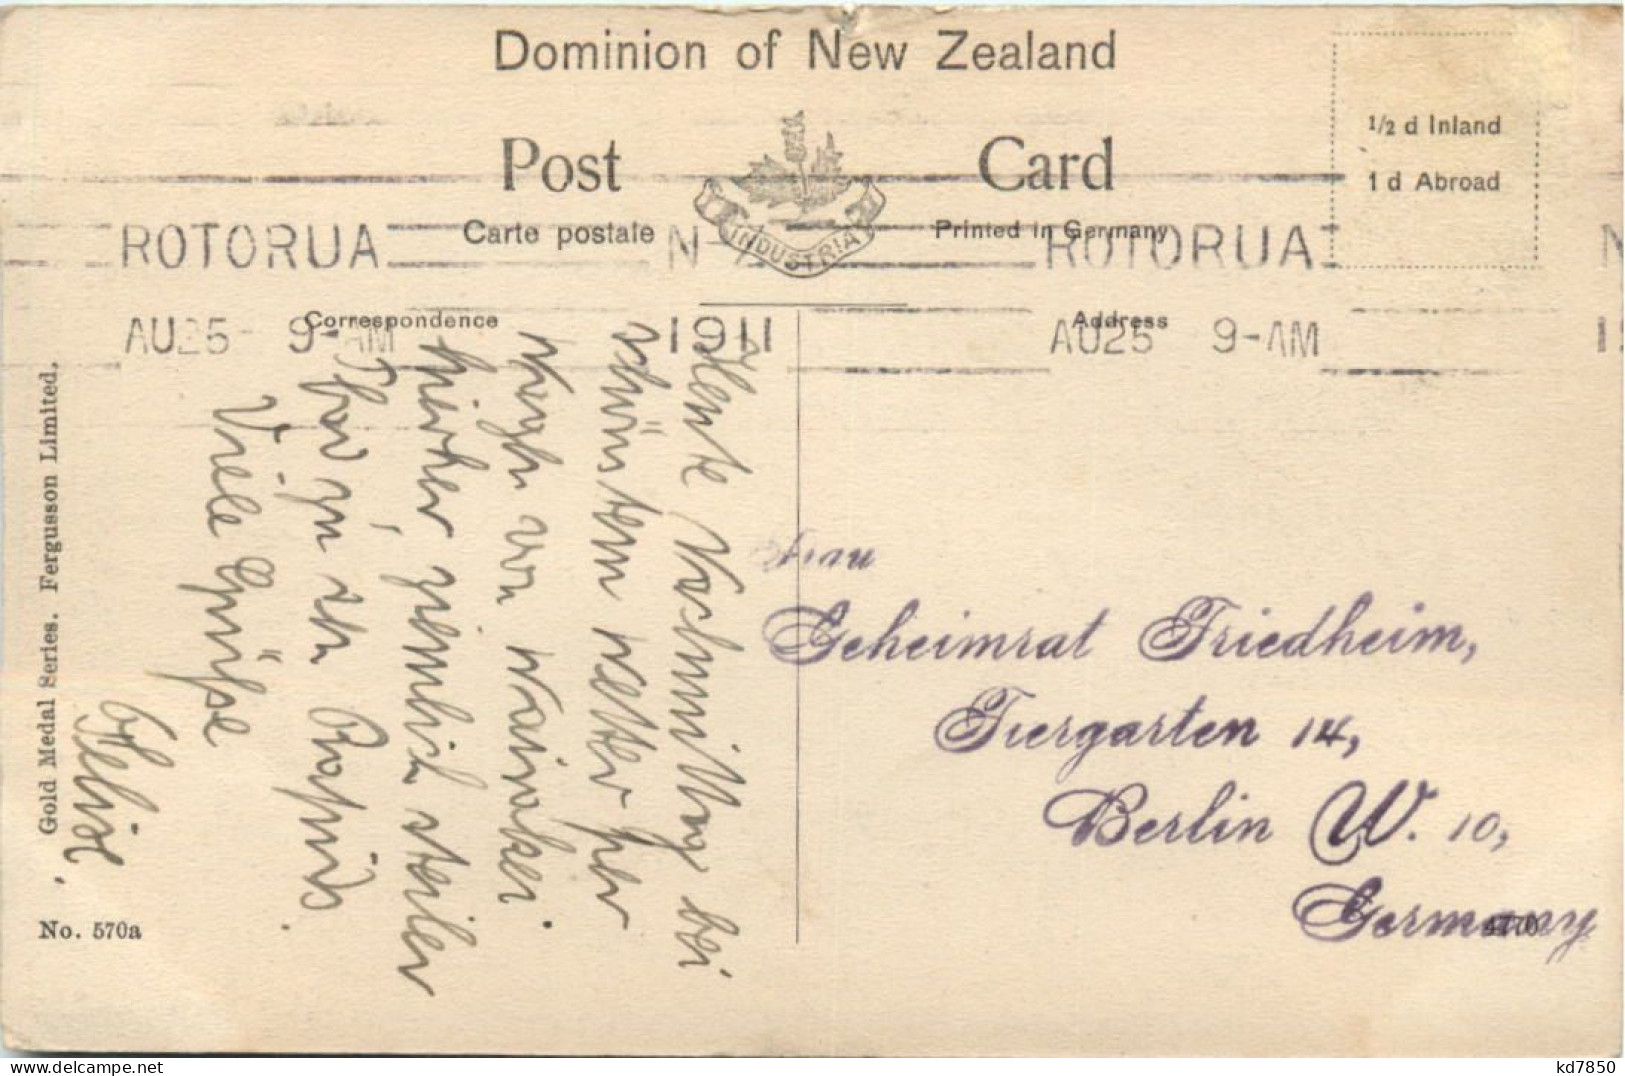 Dominion of New Zealand
Post Card
INDUSTRIA
Carte postale
Printed in Germany
1/2 d Inland
1 d Abroad
ROTORUA N-Z
ROTORUA N
AU25 9-AM 1911
AU25 9-AM 1
Correspondence
Address
Heute Nachmittag bei
schönstem Wetter per
von Wairakei.
hierher, ziemlich steiler
Pfad zu den Rapids.
Viele Grüße
Frau
Geheimrat Friedheim,
Tiergarten 14,
Berlin W. 10,
Germany
Gold Medal Series. Fergusson Limited.
No. 570a
kd7850